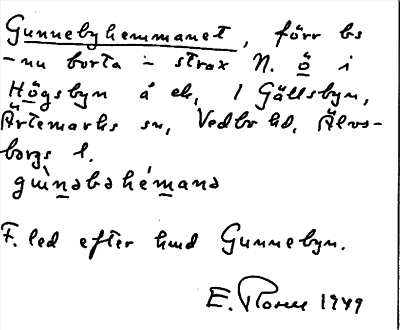 Gunnebyhemmanet, förr bs
- nu borta - strax N. ö i
Högsbyn å ek, 1 Gällsbyn,
Ärtemarks sn, Vedbo hd, Älvs-
borgs l.
gẁnəbəhémanə
F. led efter hmd Gunnebyn.
E. 1949